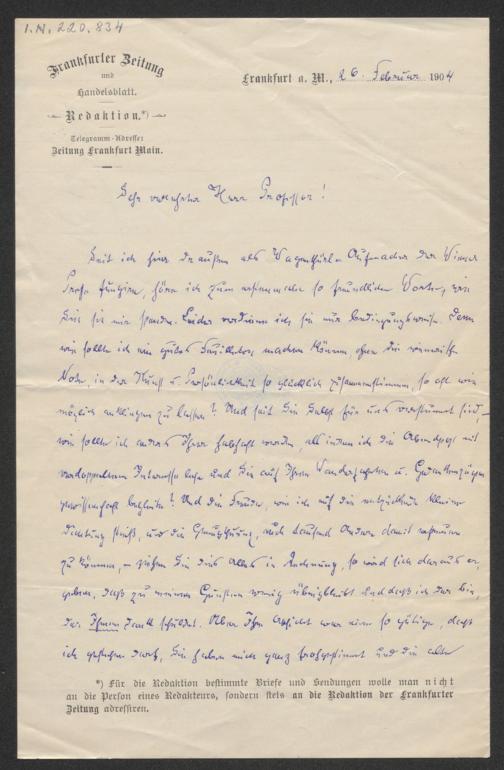 I.N. 220.834
Frankfurter Zeitung
und
Handelsblatt.
Redaktion.*)
Telegramm-Adresse:
Zeitung Frankfurt Main.
Frankfurt a. M., 26. Februar 1904
Sehr verehrter Herr Professor!
Seit ich hier draußen als Wagenthürl-Aufmacher der Wiener
Presse fungire, höre ich zum ersten male so freundliche Worte, wie
Sie sie mir spenden. Leider verdiene ich sie nur bedingungsweise. Denn
wie sollte ich ein gutes Feuilleton machen können, ohne die
Note, in der Kunst u. Persönlichkeit so glücklich zusammenstimmen, so oft wie
möglich anklingen zu lassen? Und seit Sie selbst für uns verstummt sind, –
wie sollte ich anders Ihrer habhaft werden, als indem ich die Abendpost mit
verdoppeltem Interesse lese und Sie auf Ihren Wanderfahrten u. Gedankenzügen
gewissenhaft begleite? Und die Freude, wie ich auf die entzückende kleine
Dichtung stieß, und die Genugthuung, auch tausend Andere damit erfreuen
zu können, – ziehen Sie dies alles in Rechnung, so wird sich daraus er-
geben, daß zu meinen Gunsten wenig übrigbleibt und daß ich der bin,
der Ihnen Dank schuldet. Aber Ihre Absicht war eine so gütige, daß
ich gestehen darf, Sie haben mich ganz frohgestimmt und die alte
*) Für die Redaktion bestimmte Briefe und Sendungen wolle man nicht
an die Person eines Redakteurs, sondern stets an die Redaktion der Frankfurter
Zeitung adressiren.